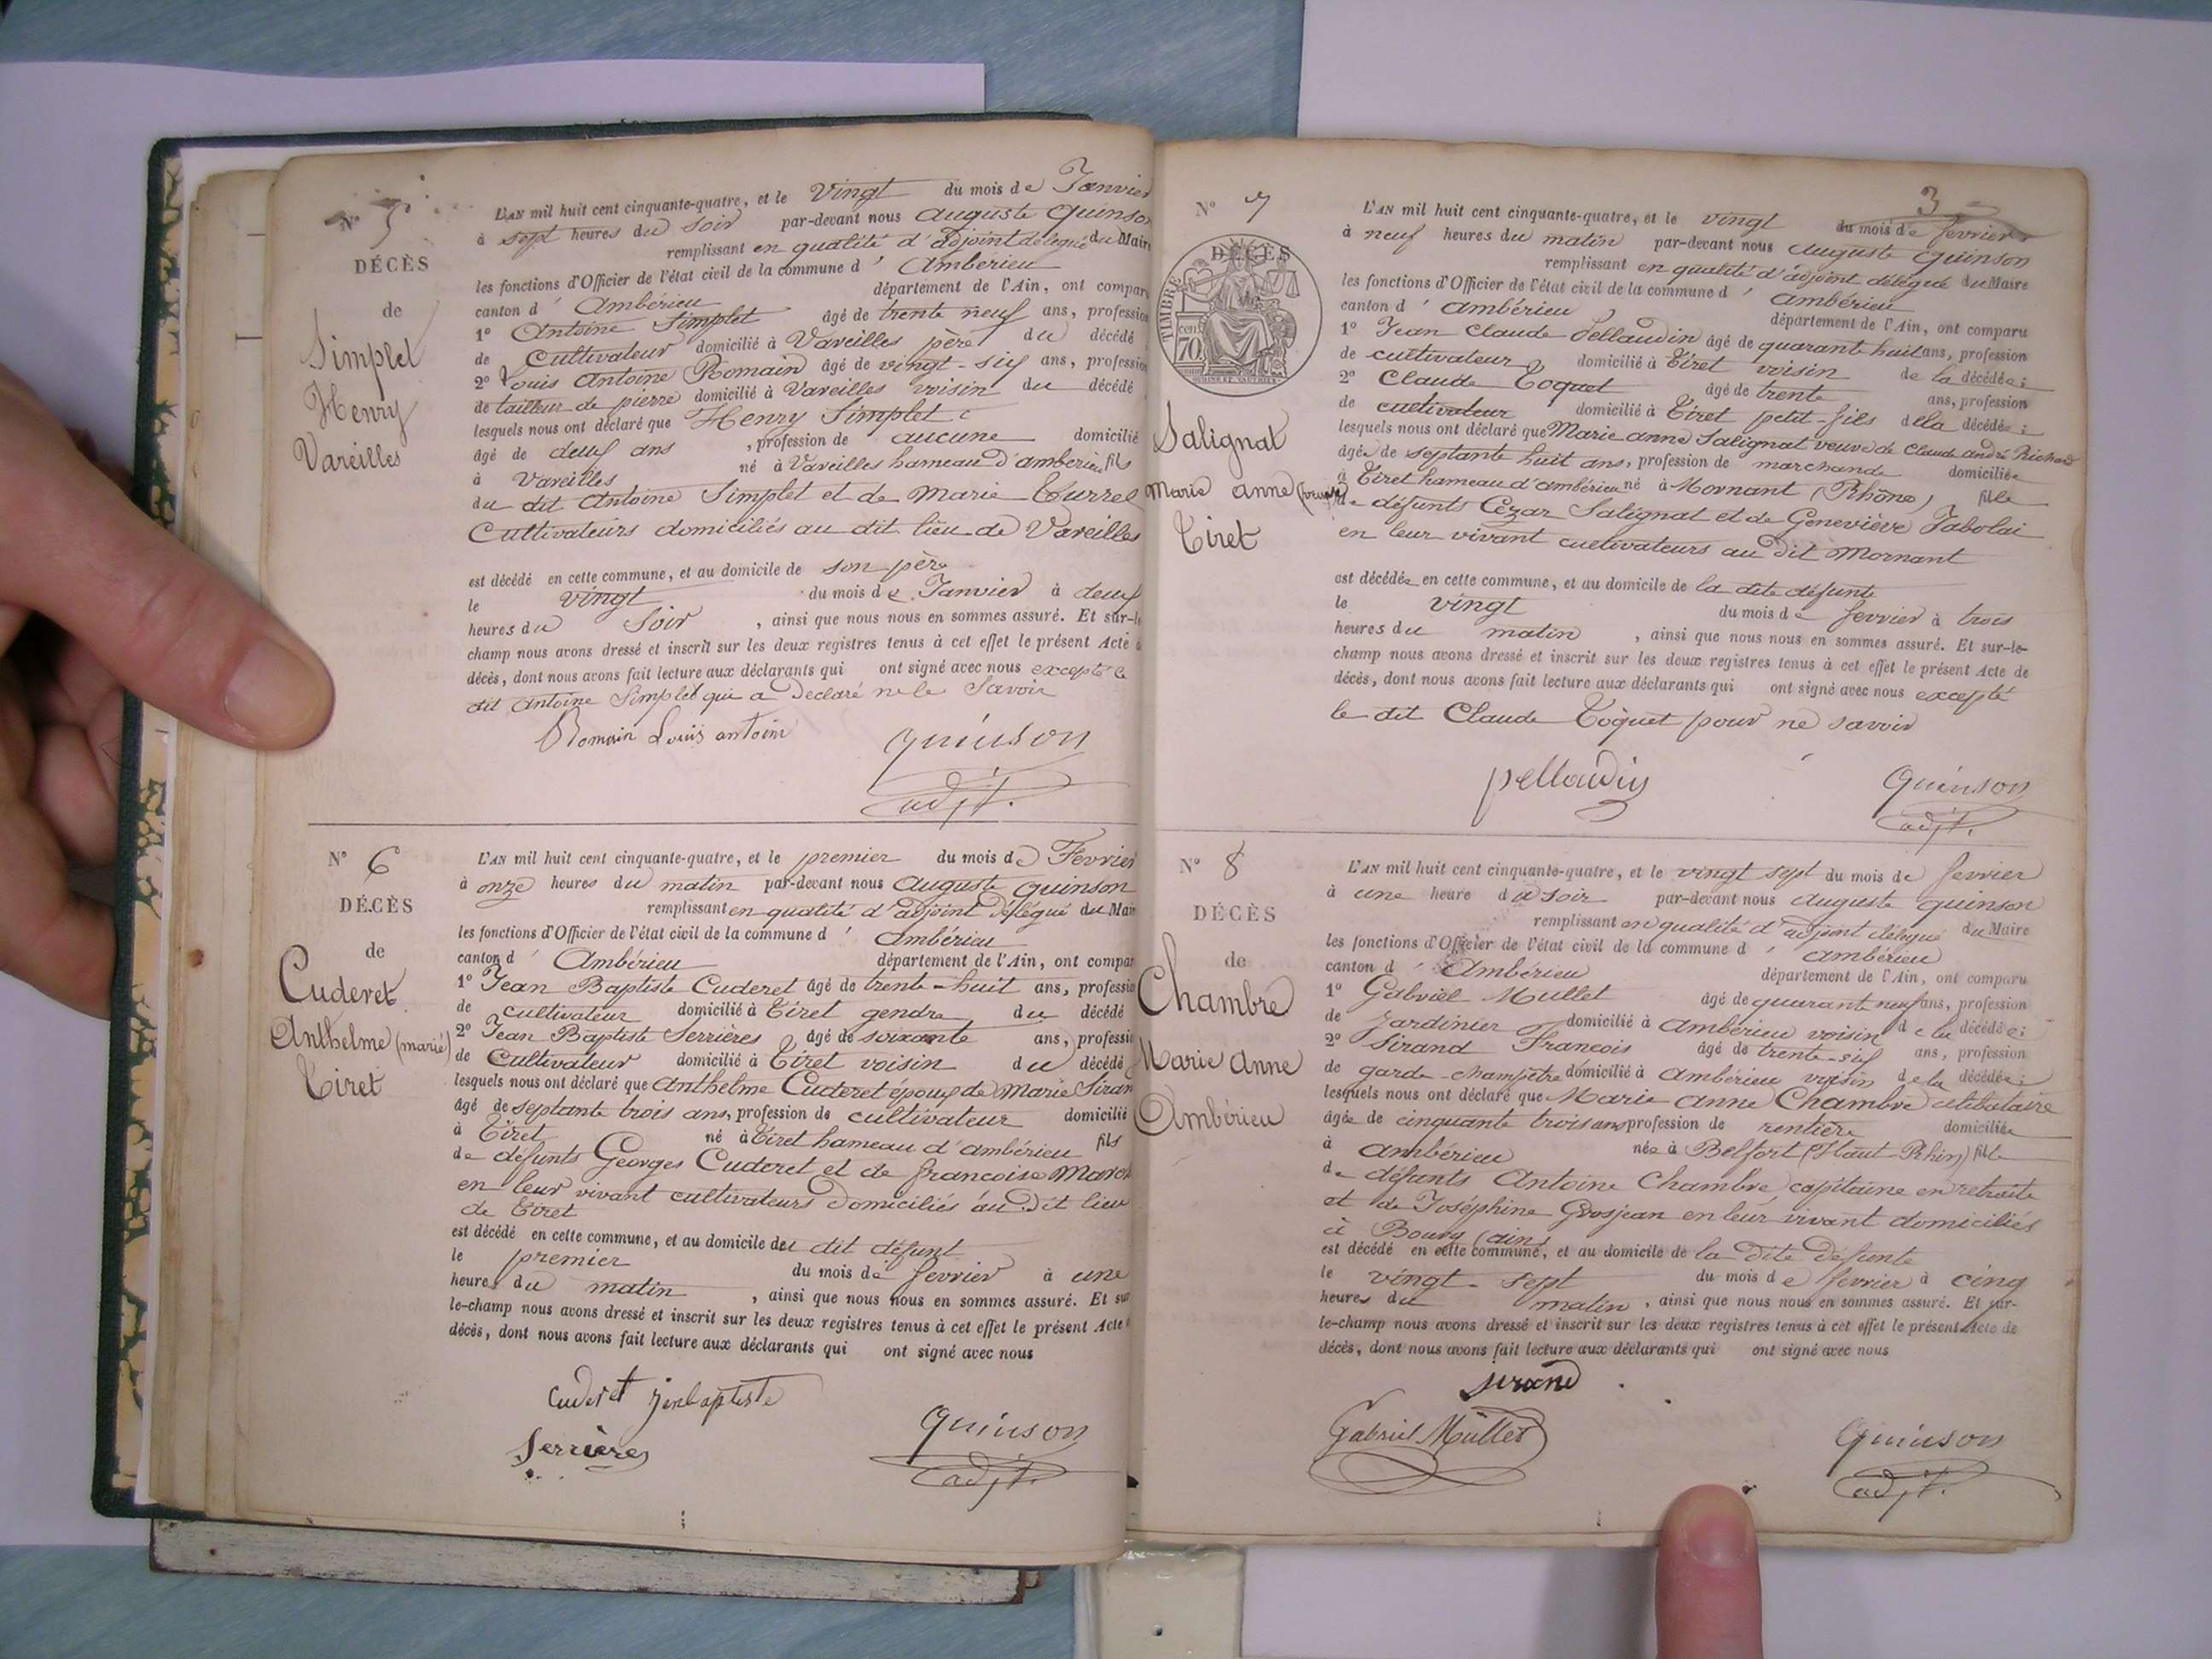 N° 5
DÉCÈS
de
Simplet
Henry
Vareilles
L'AN mil huit cent cinquante-quatre, et le vingt du mois de Janvier
à sept heures du soir par-devant nous auguste quinson
remplissant en qualité d'adjoint délégué du Maire
les fonctions d'Officier de l'état civil de la commune d' Ambérieu
canton d' Ambérieu département de l'Ain, ont compar
1° Antoine Simplet âgé de trente neuf ans, profession
de Cultivateur domicilié à Vareilles père du décédé
2° Louis Antoine Romain âgé de vingt-six ans, profession
de tailleur de pierre domicilié à Vareilles voisin du décédé
lesquels nous ont déclaré que Henry Simplet
âgé de deux ans, profession de aucune domicilié
à Vareilles né à Vareilles hameau d'ambérieu fils
du dit Antoine Simplet et de Marie Turrel
Cultivateurs domiciliés au dit lieu de Vareilles
est décédé en cette commune, et au domicile de son père
le vingt du mois de Janvier à deux
heures du soir, ainsi que nous nous en sommes assuré. Et sur-le
champ nous avons dressé et inscrit sur les deux registres tenus à cet effet le présent Acte d
décès, dont nous avons fait lecture aux déclarants qui ont signé avec nous excepté le
dit Antoine Simplet qui a Declaré ne le Savoir
Romain Louis antoine quinson
adjt.
N° 6
DÉCÈS
de
Cuderet
Anthelme (marié)
Tiret
L'AN mil huit cent cinquante-quatre, et le premier du mois de Fevrier
à onze heures du matin par-devant nous auguste quinson
remplissant en qualité d'adjoint délégué du Mair
les fonctions d'Officier de l'état civil de la commune d' Ambérieu
canton d' Ambérieu département de l'Ain, ont compar
1° Jean Baptiste Cuderet âgé de trente-huit ans, professio
de cultivateur domicilié à Tiret gendre du décédé
2° Jean Baptiste Serrières âgé de soixante ans, professi
de Cultivateur domicilié à Tiret voisin du décédé
lesquels nous ont déclaré que Anthelme Cuderet époux de Marie Siran
âgé de septante trois ans, profession de cultivateur domicilié
à Tiret né à Tiret hameau d'ambérieu fils
de défunts Georges Cuderet et de francoise
en leur vivant cultivateurs domiciliés au dit lieu
de Tiret
est décédé en cette commune, et au domicile du dit défunt
le premier du mois de fevrier à une
heure du matin, ainsi que nous nous en sommes assuré. Et sur
le-champ nous avons dressé et inscrit sur les deux registres tenus à cet effet le présent Acte
décès, dont nous avons fait lecture aux déclarants qui ont signé avec nous
Cuderet
Serrières quinson
adjt.
3
N° 7
DÉCÈS
TIMBRE
70
Salignat
Marie anne (veuve)
Tiret
L'AN mil huit cent cinquante-quatre, et le vingt du mois de fevrier
à neuf heures du matin par-devant nous auguste quinson
remplissant en qualité d'adjoint délégué du Maire
les fonctions d'Officier de l'état civil de la commune d' ambérieu
canton d' ambérieu département de l'Ain, ont comparu
1° Jean Claude Pellaudin âgé de quarante huit ans, profession
de cultivateur domicilié à Tiret voisin de la décédée;
2° Claude Toquet âgé de trente ans, profession
de cultivateur domicilié à Tiret petit-fils de la décédée;
lesquels nous ont déclaré que Marie anne Salignat veuve de claude andré Richard
âgée de septante huit ans, profession de marchande domiciliée
à Tiret hameau d'ambérieu né à Mornant (Rhône) fille
de défunts Cézar Salignat et de Geneviève Jabolai
en leur vivant cultivateurs au dit Mornant
est décédée en cette commune, et au domicile de la dite défunte
le vingt du mois de fevrier à trois
heures du matin, ainsi que nous nous en sommes assuré. Et sur-le-
champ nous avons dressé et inscrit sur les deux registres tenus à cet effet le présent Acte de
décès, dont nous avons fait lecture aux déclarants qui ont signé avec nous excepté
le dit Claude Toquet pour ne savoir
pellaudin quinson
adjt.
N° 8
DÉCÈS
de
Chambre
Marie Anne
Ambérieu
L'AN mil huit cent cinquante-quatre, et le vingt sept du mois de fevrier
à une heure du soir par-devant nous auguste quinson
remplissant en qualité d'adjoint délégué du Maire
les fonctions d'Officier de l'état civil de la commune d' ambérieu
canton d' Ambérieu département de l'Ain, ont comparu
1° Gabriel Mullet âgé de quarant neuf ans, profession
de Jardinier domicilié à Ambérieu voisin de la décédée;
2° Sirand Francois âgé de trente-six ans, profession
de garde-champêtre domicilié à Ambérieu voisin de la décédée;
lesquels nous ont déclaré que Marie anne Chambre célibataire
âgée de cinquante trois ans profession de rentière domiciliée
à ambérieu née à Belfort (Haut-Rhin) fille
de défunts Antoine Chambre capitaine en retraite
et de Joséphine Grosjean en leur vivant domiciliés
à Bourg (ain)
est décédé en cette commune, et au domicile de la dite défunte
le vingt-sept du mois de fevrier à cinq
heures du matin, ainsi que nous nous en sommes assuré. Et sur-
le-champ nous avons dressé et inscrit sur les deux registres tenus à cet effet le présent Acte de
décès, dont nous avons fait lecture aux déclarants qui ont signé avec nous
sirand
Gabriel Müllet quinson
adjt.